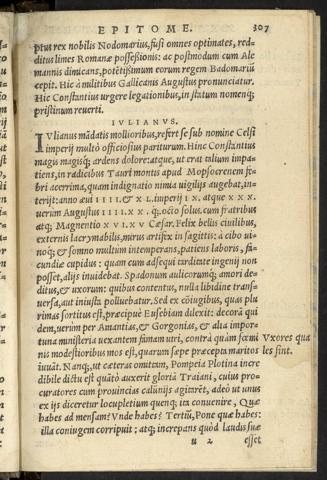 EPITOME. 307
ptus rex nobilis Nodomarius, fusi omnes optimates, red-
ditus limes Romanæ possessionis: ac postmodum cum Ale
mannis dimicans, potẽtissimum eorum regem Badomariũ
cepit. Hic à militibus Gallicanis Augustus pronunciatur.
Hic Constantius urgere legationibus, in statum nomenq;
pristinum reverti.
IVLIANVS.
IVlianus mãdatis mollioribus, refert se sub nomine Celsi
imperij multò officiosius pariturum. Hinc Constantius
magis magisq́; ardens dolore: atque, ut erat talium impa-
tiens, in radicibus Tauri montis apud Mopsocrenem fe-
bri acerrima, quam indignatio nimia uigilijs augebat, in-
terijt: anno æui IIII. & XL. imperij IX. atque XXX.
uerum Augustus IIII. XX. q́; octo solus. cum fratribus
atq; Magnentio XVI. XV Cæsar. Felix bellis ciuilibus,
externis lacrymabilis, mirus artifex in sagittis: à cibo ui-
noq́; & somno multum intemperans, patiens laboris, fa-
cundiæ cupidus: quam cum adsequi tarditate ingenij non
posset, alijs inuidebat. Spadonum aulicorumq́; amori de-
ditus, & uxorum: quibus contentus, nulla libidine trans-
uersa, aut iniusta polluebatur. Sed ex cõiugibus, quas plu
rimas sortitus est, præcipuè Eusebiam dilexit: decorã qui
dem, uerùm per Amantias, & Gorgonias, & alia impor-
tuna ministeria uexantem famam uiri, contrà quàm fœmi Vxores qua
nis modestioribus mos est, quarum sæpe præcepta maritos les sint.
iuuãt. Nanq́; ut cæteras omittam, Pompeia Plotina incre
dibile dictu est quãtò auxerit gloriã Traiani, cuius pro-
curatores cum prouincias calũnijs agitarẽt, adeò ut unus
ex ijs diceretur locupletium quenq; ita conuenire, Quæ
habes ad mensam? Vnde habes? Tertiũ, Pone quæ habes:
illa coniugem corripuit: atq́; increpans quòd laudis suæ
u 2 esset